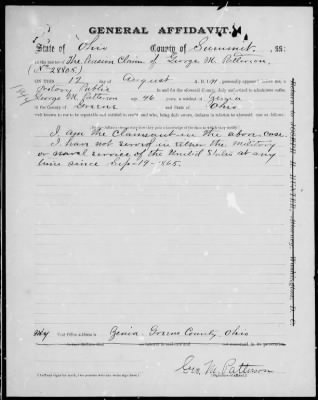 GENERAL AFFIDAVIT.
State of Ohio County of Summit, SS:
In the matter of The Pension Claim of George M. Patterson
(No 28805.)
ON THIS 12 day of August A. D. 1891, personally appeared before me, a
Notary Public in and for the aforesaid County, duly authorized to administer oaths
George M. Patterson age 46 years, a resident of Xenia
in the County of Greene and State of Ohio
well known to me to be reputable and entitled to credit, and who, being duly sworn, declares in relation to aforesaid case as follows:
I am the Claimant in the above case.
I have not served in either the military
or naval service of the United States at any
time since Sep-19-1865.
My Post Office Address is Xenia Greene County Ohio
Geo. M. Patterson